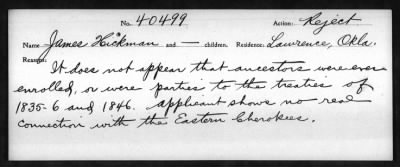 No. 40499 Action: Reject
Name James Hickman and — children. Residence: Lawrence, Okla.
Reason:
It does not appear that ancestors were ever
enrolled, or were parties to the treaties of
1835-6 and 1846. applicant shows no real
connection with the Eastern Cherokees.